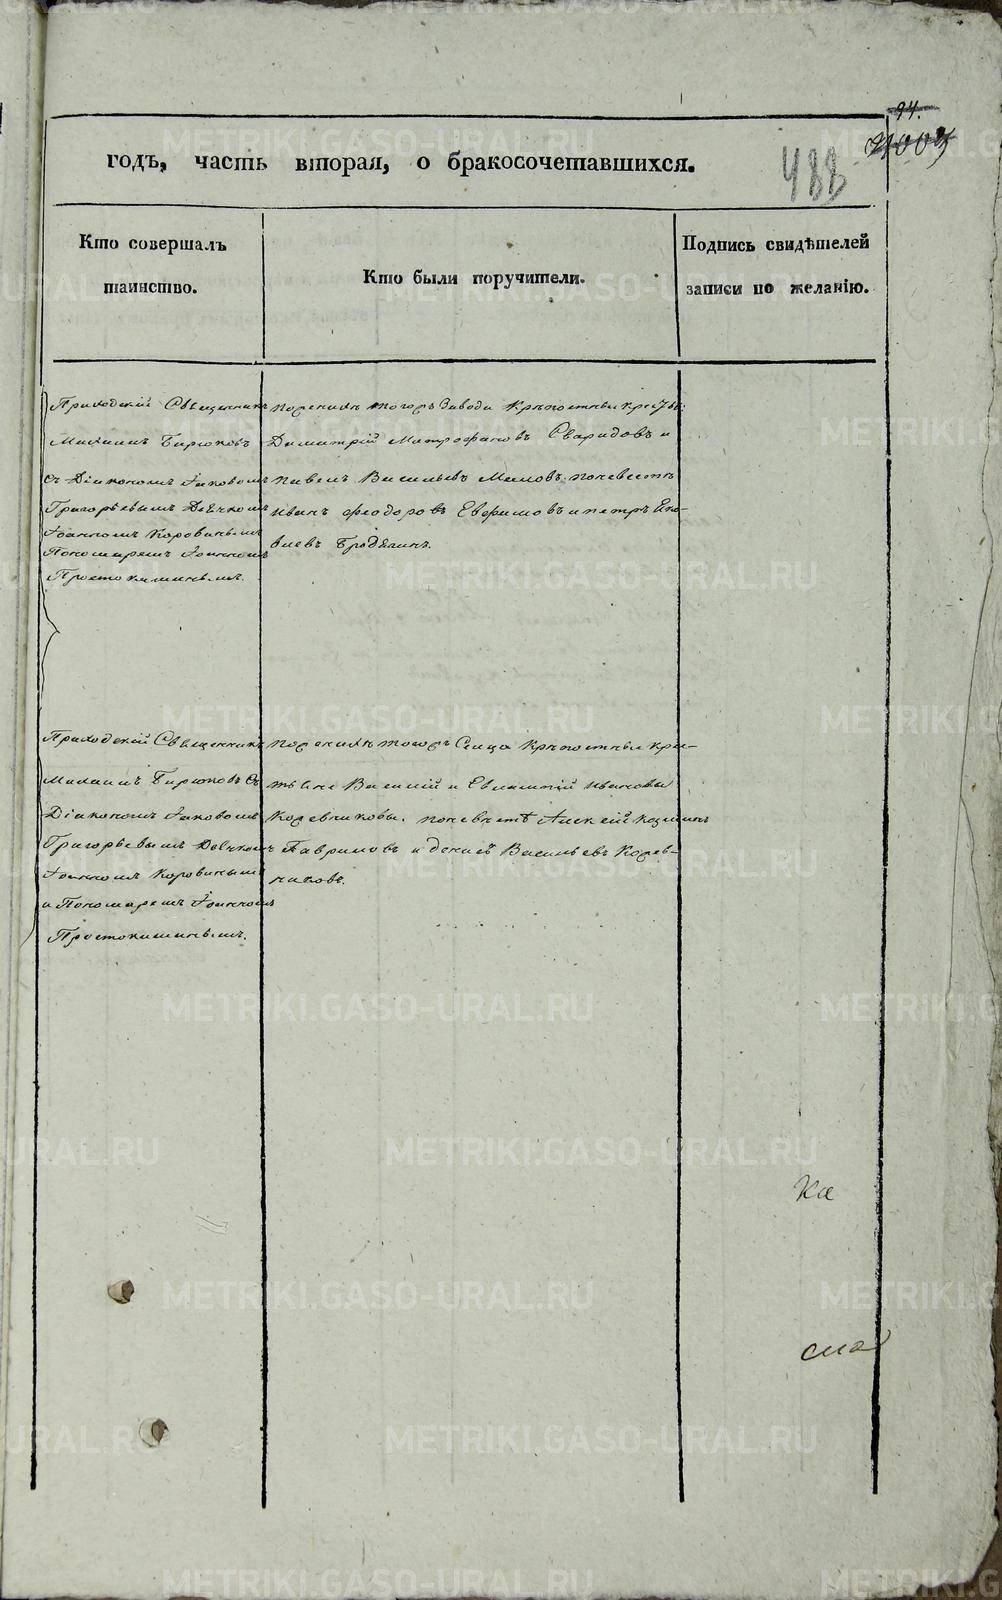 94.
годъ, часть вторая, о бракосочетавшихся.
488
Кто совершалъ
таинство.
Кто были поручители.
Подпись свидѣтелей
записи по желанію.
Приходскій Священникъ
Михаилъ Бирюковъ
съ Діакономъ Іаковомъ
Григорьевымъ Дьячкомъ
Іоанномъ Коровинымъ
Пономаремъ Іоанномъ
Простокишинымъ.
по женихѣ тогожъ Завода Крѣпостные
Димитрій Митрофановъ и
Павелъ Васильевъ по невестѣ
Иванъ Феодоровъ Евфимовъ и петръ
Приходскій Священникъ
Михаилъ Бирюковъ Съ
Діакономъ Іаковомъ
Григорьевымъ Дьячкомъ
Іоанномъ Коровинымъ
и Пономаремъ Іоанномъ
Простокишинымъ.
по женихѣ тогожъ Сельца Крѣпостные кре-
стьяне Василій и Евлампій Ивановы
Кожевниковы. по невестѣ Алексій
Гавриловъ и Денисъ Васильевъ Кожев-
никовъ.
Ка
сма
METRIKI.GASO-URAL.RU